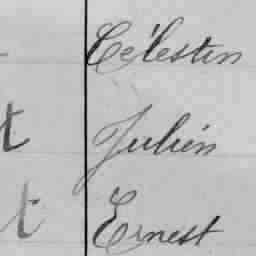 Célestin
t Julien
t Ernest